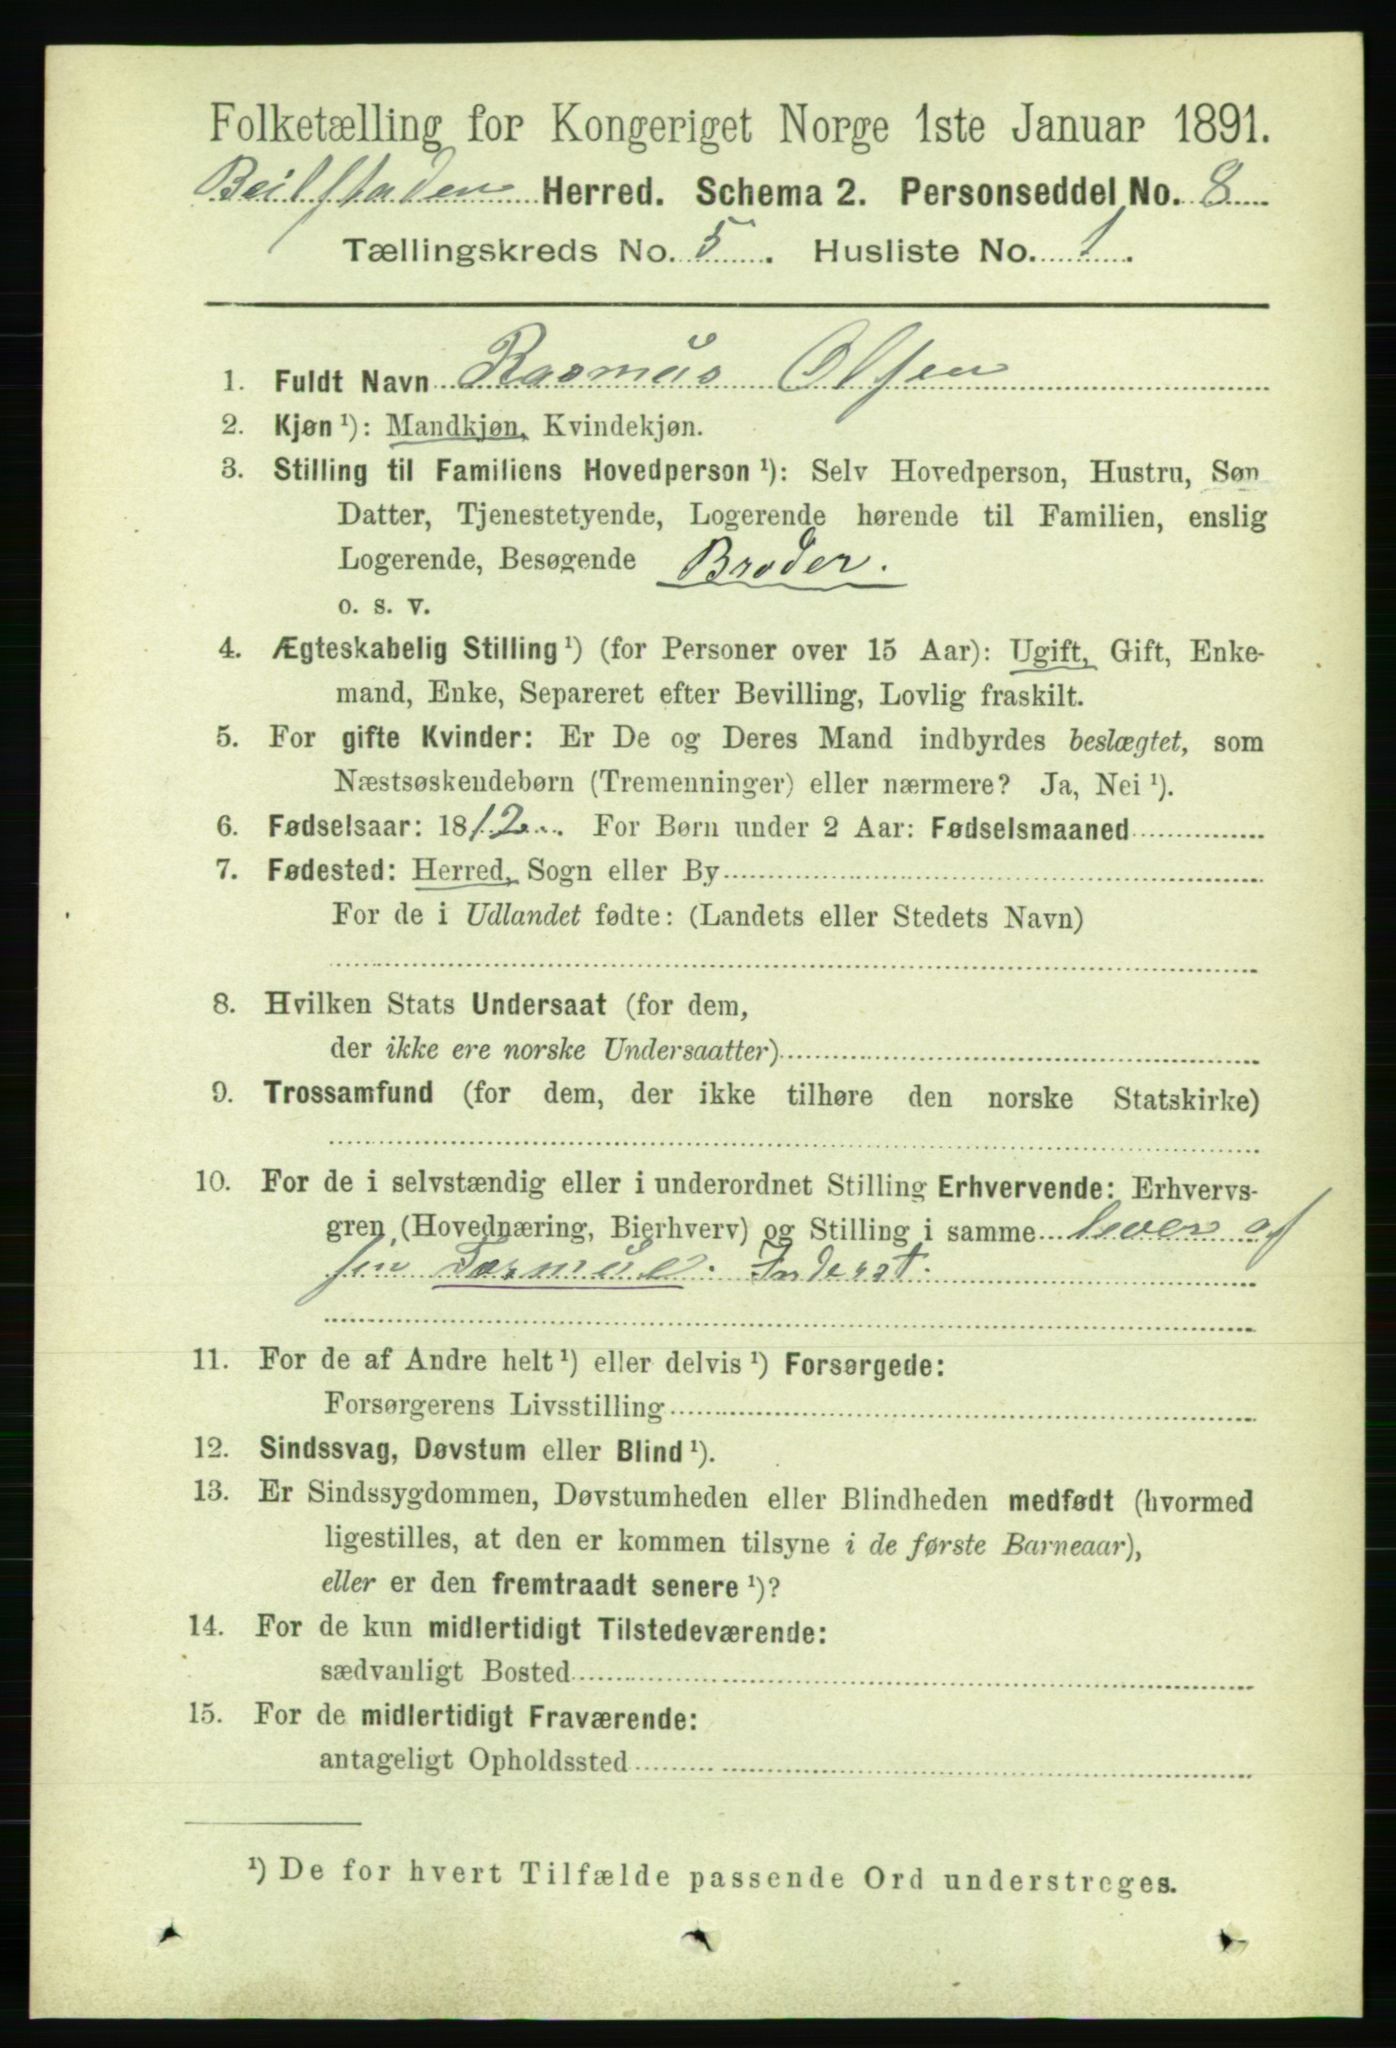 Folketælling for Kongeriget Norge 1ste Januar 1891.
Beitstaden Herred. Schema 2. Personseddel No. 8
Tællingskreds No. 5. Husliste No. 1.
1. Fuldt Navn Rasmus Olsen
2. Kjøn ¹): Mandkjøn, Kvindekjøn.
3. Stilling til Familiens Hovedperson ¹): Selv Hovedperson, Hustru, Søn
Datter, Tjenestetyende, Logerende hørende til Familien, enslig
Logerende, Besøgende Broder.
o. s. v.
4. Ægteskabelig Stilling ¹) (for Personer over 15 Aar): Ugift, Gift, Enke-
mand, Enke, Separeret efter Bevilling, Lovlig fraskilt.
5. For gifte Kvinder: Er De og Deres Mand indbyrdes beslægtet, som
Næstsøskendebørn (Tremenninger) eller nærmere? Ja, Nei ¹).
6. Fødselsaar: 1812. For Børn under 2 Aar: Fødselsmaaned
7. Fødested: Herred, Sogn eller By
For de i Udlandet fødte: (Landets eller Stedets Navn)
8. Hvilken Stats Undersaat (for dem,
der ikke ere norske Undersaatter)
9. Trossamfund (for dem, der ikke tilhøre den norske Statskirke)
10. For de i selvstændig eller i underordnet Stilling Erhvervende: Erhvervs-
gren (Hovednæring, Bierhverv) og Stilling i samme lever af
sin Formue. Inderst.
11. For de af Andre helt ¹) eller delvis ¹) Forsørgede:
Forsørgerens Livsstilling
12. Sindssvag, Døvstum eller Blind ¹).
13. Er Sindssygdommen, Døvstumheden eller Blindheden medfødt (hvormed
ligestilles, at den er kommen tilsyne i de første Barneaar),
eller er den fremtraadt senere ¹)?
14. For de kun midlertidigt Tilstedeværende:
sædvanligt Bosted
15. For de midlertidigt Fraværende:
antageligt Opholdssted
¹) De for hvert Tilfælde passende Ord understreges.